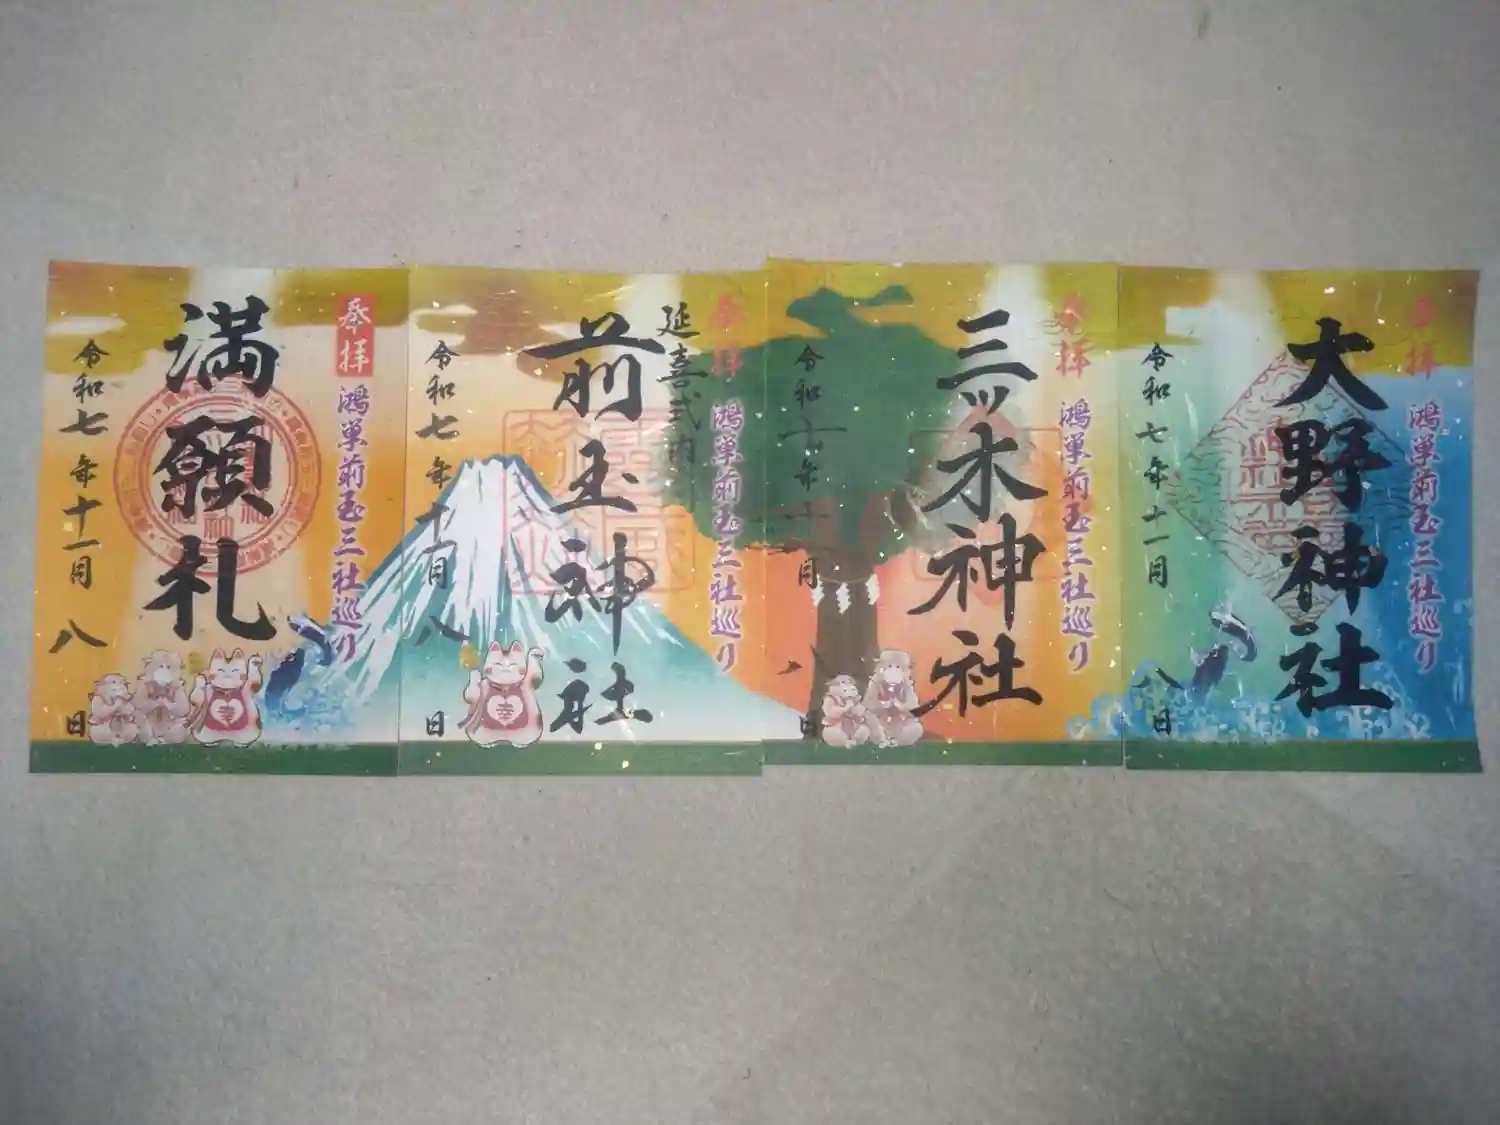 大野神社
奉拝
鴻巣前玉三社巡り
令和七年十一月八日
三ッ木神社
奉拝
鴻巣前玉三社巡り
令和七年十一月八日
延喜式内
前玉神社
奉拝
鴻巣前玉三社巡り
令和七年十一月八日
幸
満願札
奉拝
鴻巣前玉三社巡り
令和七年十一月八日
幸